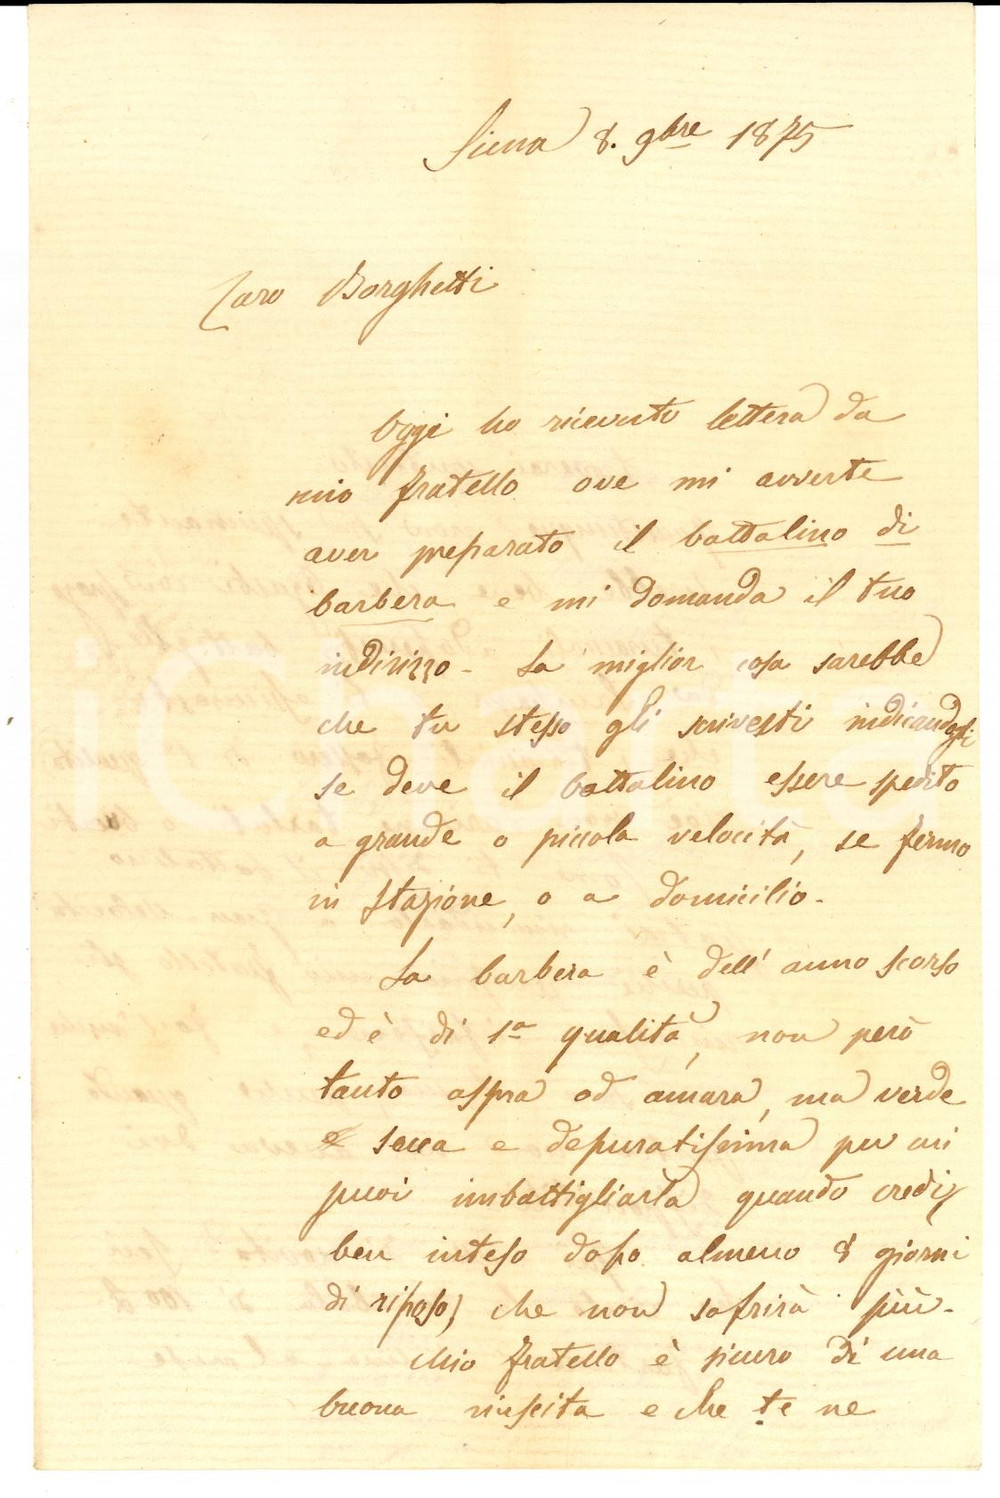 Siena 8. 9bre 1875
Caro Borghetti
Oggi ho ricevuto lettera da
mio fratello ove mi avverte
aver preparato il battalino di
barbera e mi domanda il tuo
indirizzo - La miglior cosa sarebbe
che tu stesso gli scrivesti indicandogli
se deve il battalino essere spedito
a grande o piccola velocità, se fermo
in stazione, o a domicilio.
La barbera è dell'anno scorso
ed è di 1a qualità, non però
tanto aspra od amara, ma verde
secca e depuratissima per cui
puoi imbottigliarla quando credi,
ben inteso dopo almeno 8 giorni
di riposo, che non sofrirà più.
Mio fratello è sicuro di una
buona riuscita e che te ne